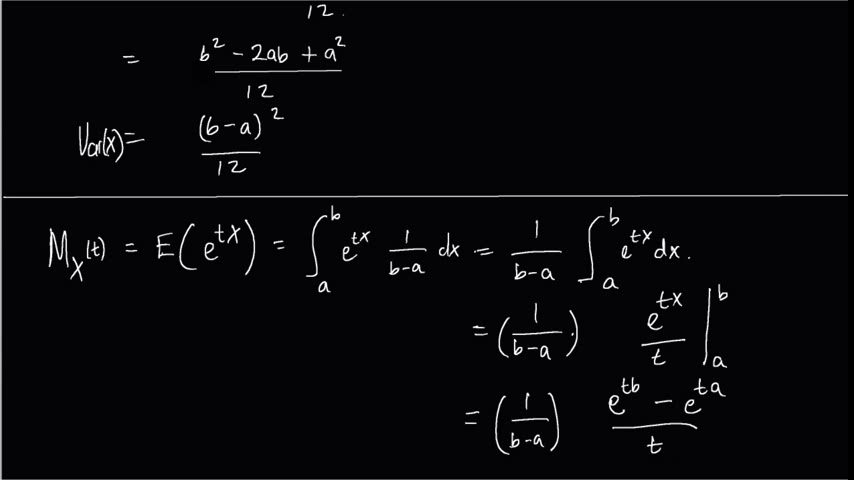 12.
= b² - 2ab + a² / 12
Var(x) = (b-a)² / 12
M_X(t) = E(e^{tX}) = ∫_a^b e^{tx} 1/(b-a) dx = 1/(b-a) ∫_a^b e^{tx} dx.
= (1/(b-a).) e^{tx}/t |_a^b
= (1/(b-a)) e^{tb} - e^{ta} / t